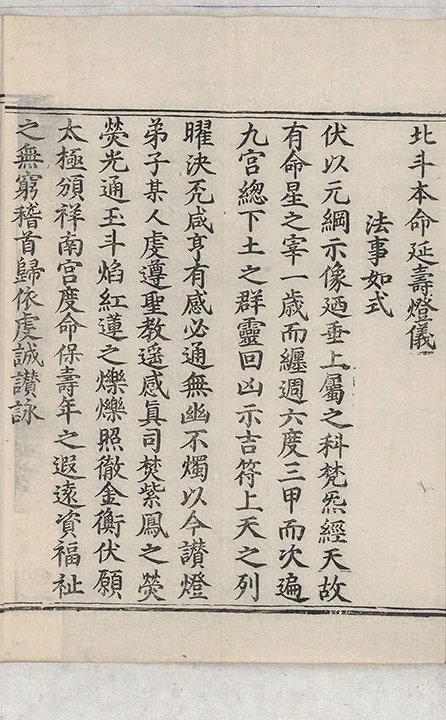 北斗本命延壽燈儀
法事如式
伏以元綱示像廼垂上屬之科梵炁經天故
有命星之宰一歲而纏週六度三甲而次遍
九宮總下土之群靈回凶示吉符上天之列
曜決兂咸亨有感必通無幽不燭以今讃燈
弟子某人虔遵聖教遥感真司焚紫鳳之熒
熒光通玉斗焰紅蓮之爍爍照徹金衡伏願
太極頒祥南宮度命保壽年之遐遠資福祉
之無窮稽首歸依虔誠讃詠